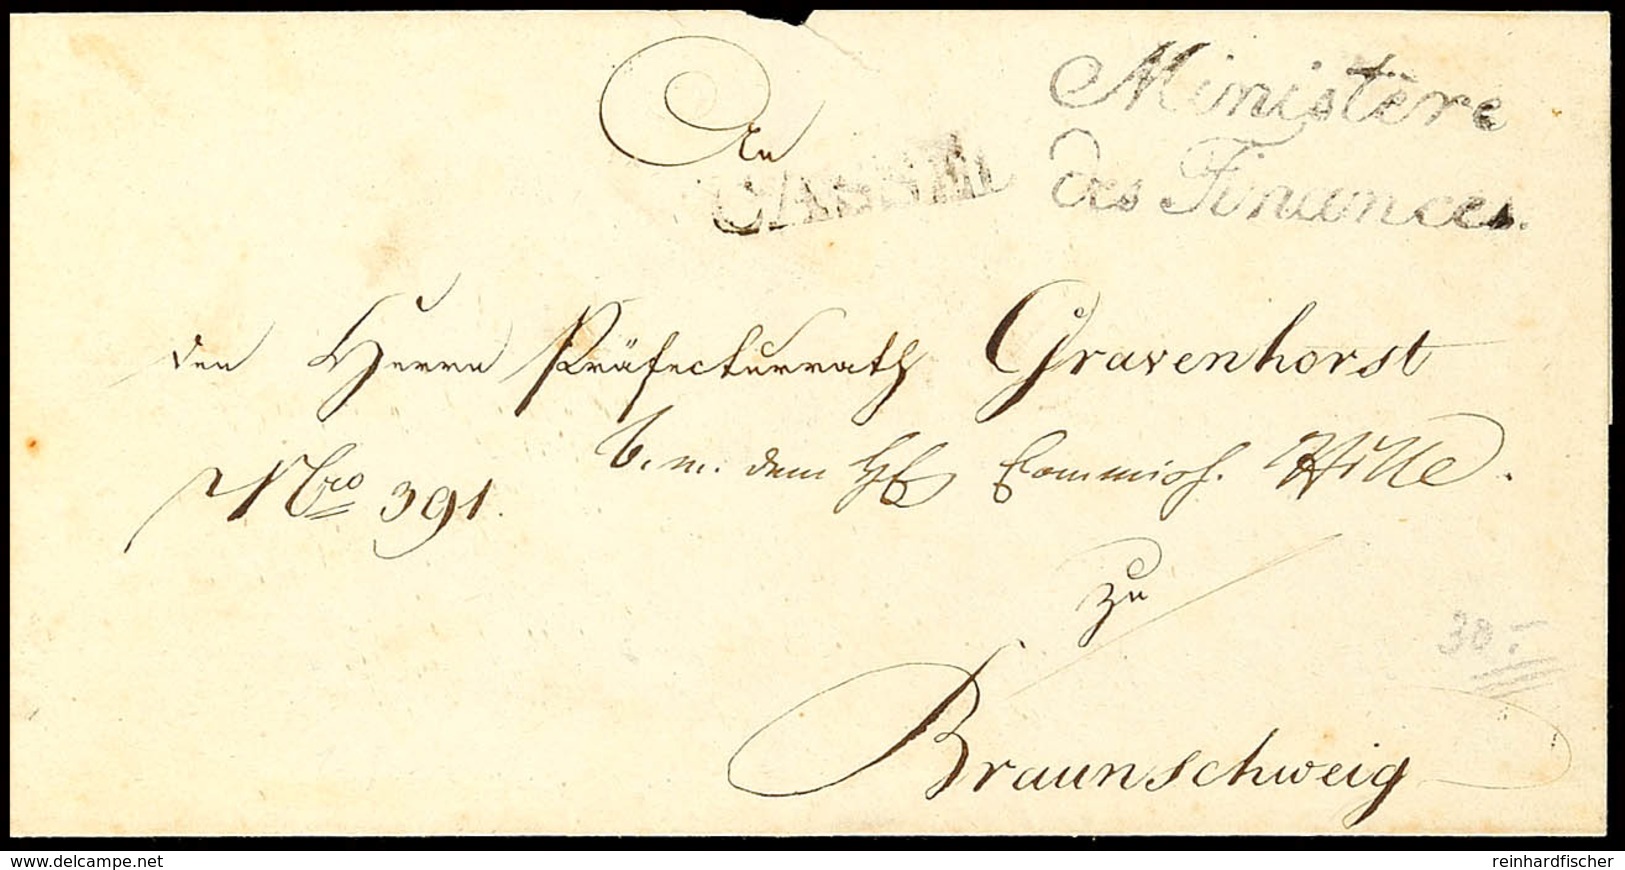 Ministère
des Finances.
An
CASSEL
den Herrn Präfecturrath Gravenhorst
Nro 391.
b. m. dem H Commiss. Wille.
zu
Braunschweig
30.-
www.delcampe.net
reinhardfischer